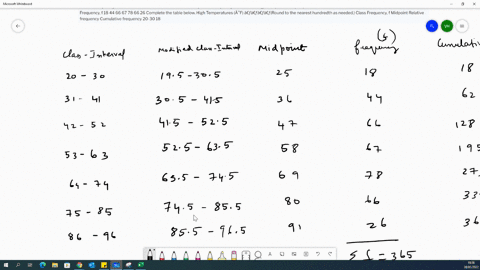 Microsoft Whiteboard
Frequency, f 18 44 66 67 78 66 26 Complete the table below, High Temperatures (Round to the nearest hundredth as needed) Data Frequency, f Midpoint Relative
frequency Cumulative frequency 20-30 18
(f)
Class-Interval Modified class-Interval Midpoint frequency Cumula
20 - 30 19.5-30.5 25 18 18
31 - 41 30.5 - 41.5 36 44 62
42 - 52 41.5 - 52.5 47 66 128
53 - 63 52.5 - 63.5 58 67 195
64 - 74 63.5 - 74.5 69 78 27
75 - 85 74.5 - 85.5 80 66 33
86 - 96 85.5 - 96.5 91 26 36
Σf = 365